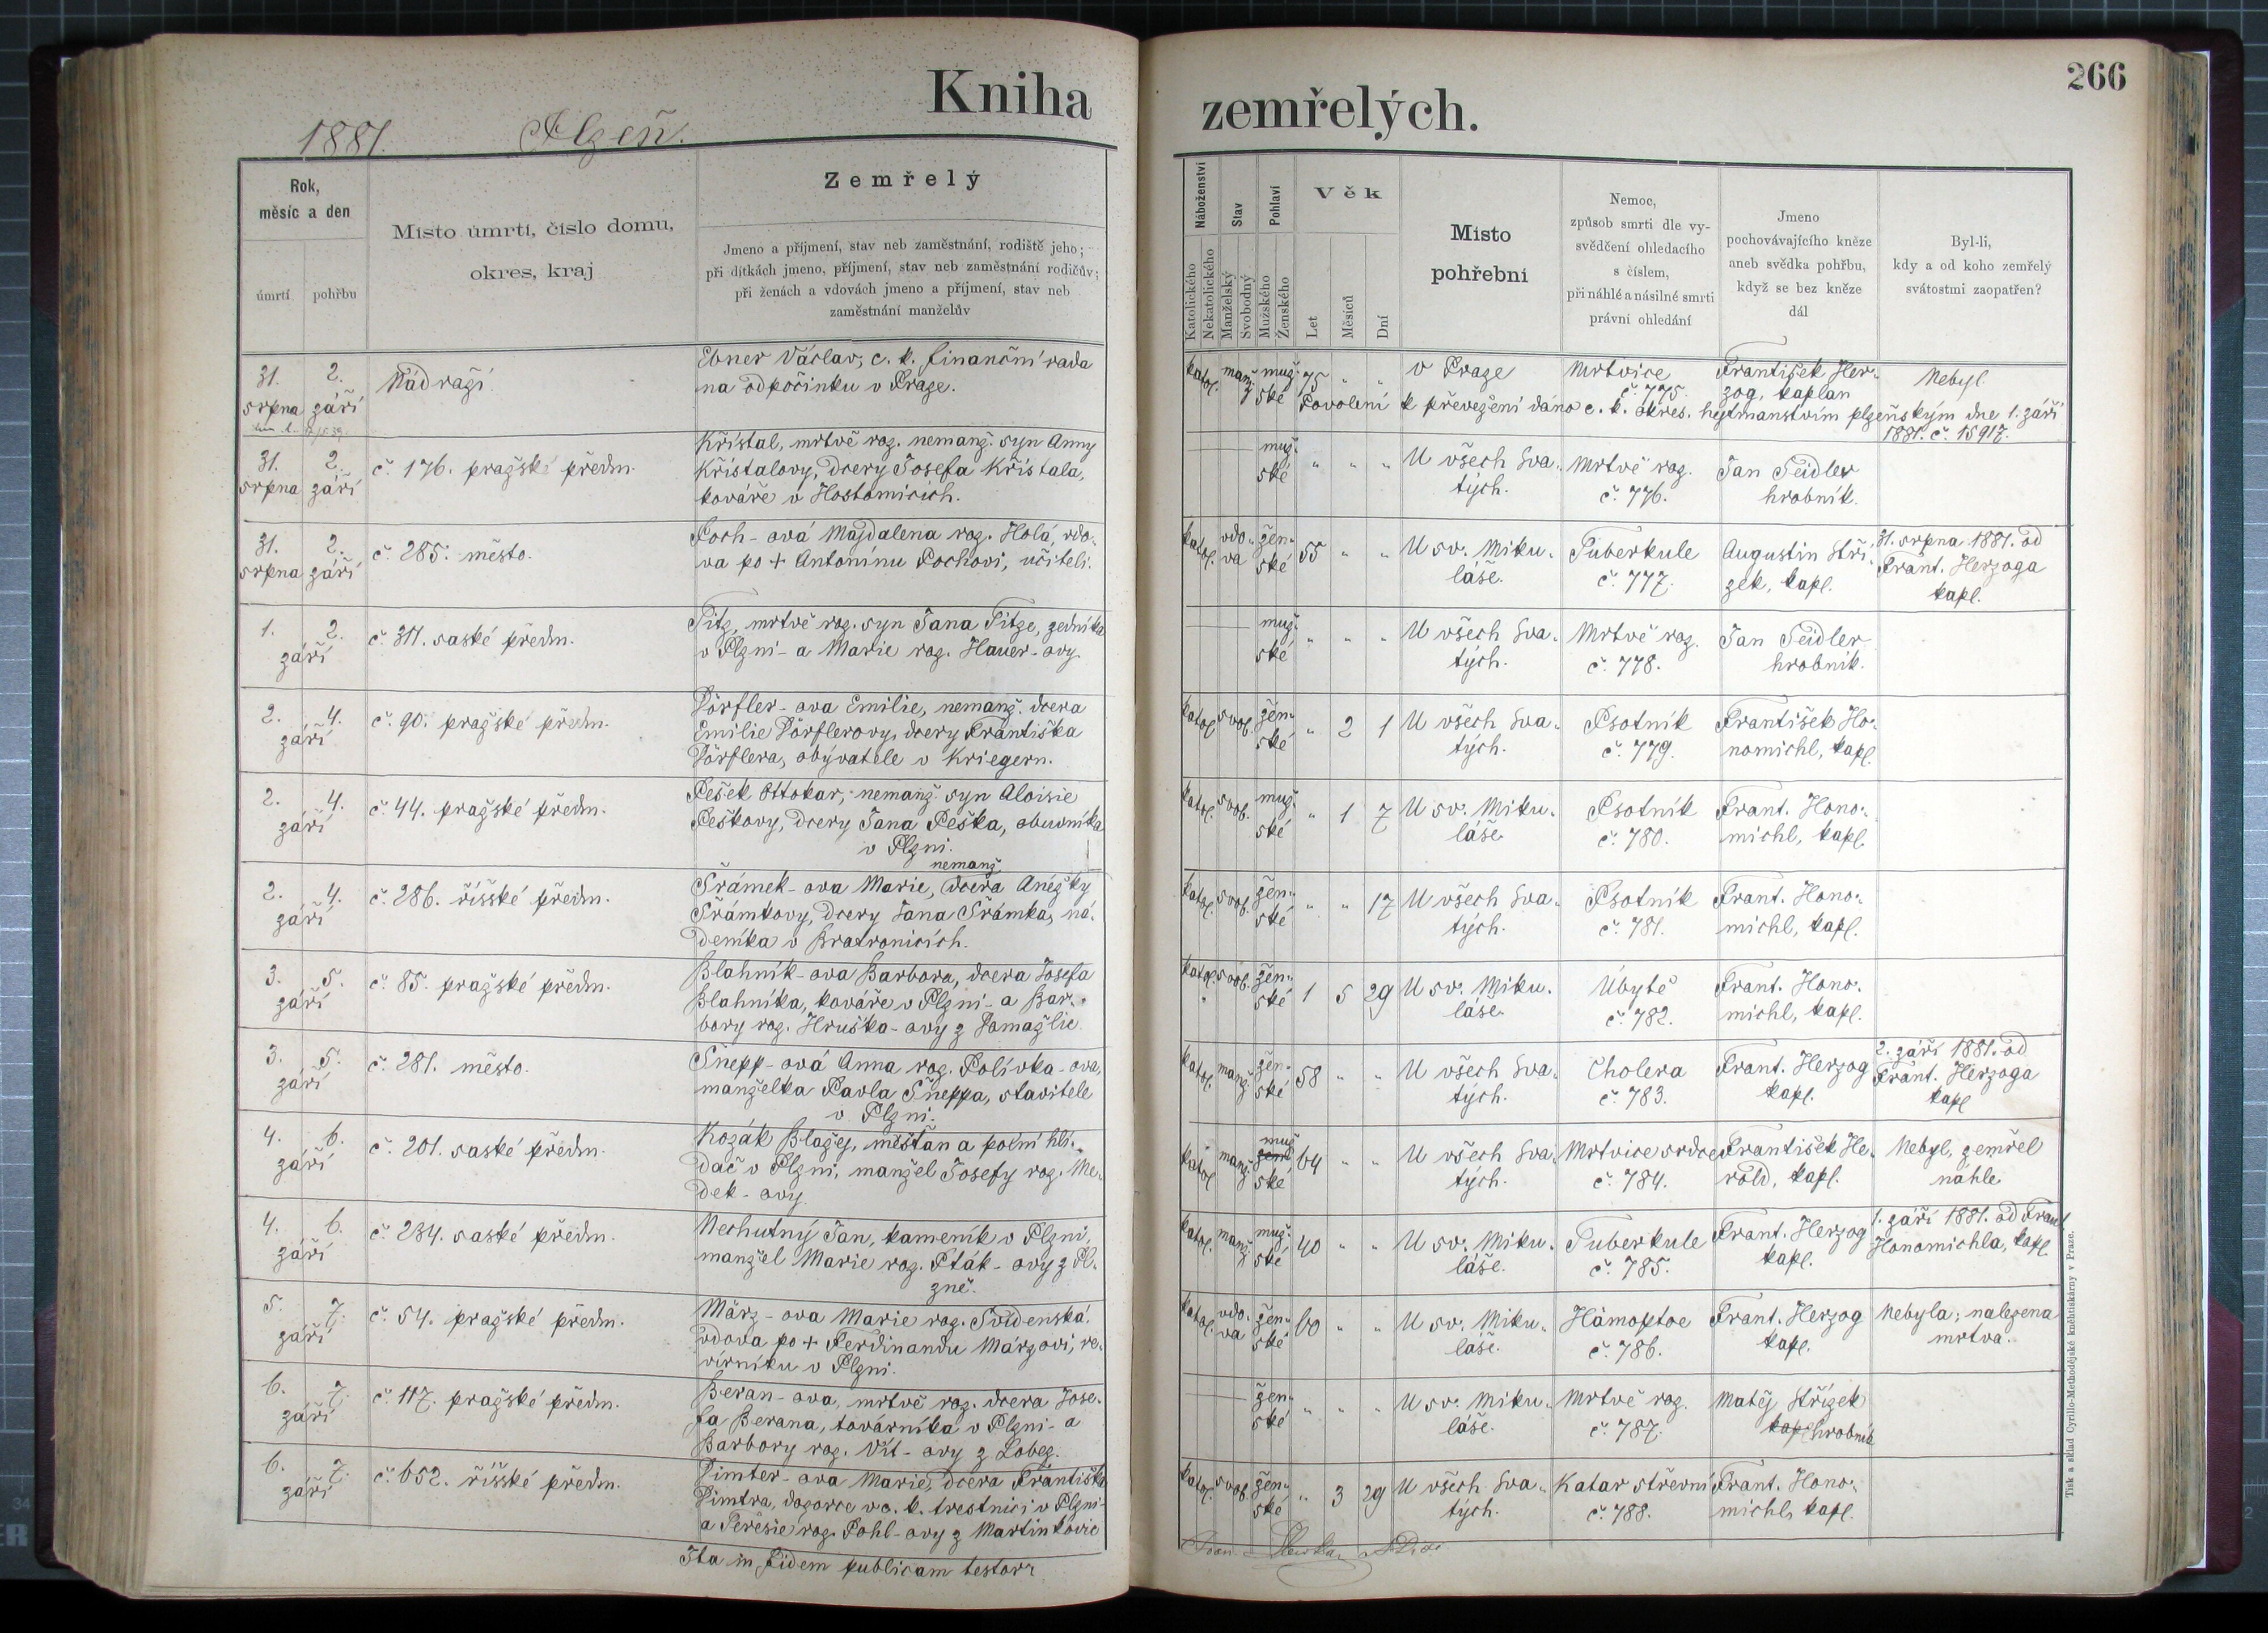 Kniha
zemřelých.
266
1881.
Plzeň.
Rok,
měsíc a den
úmrtí
pohřbu
Místo úmrtí, číslo domu,
okres, kraj
Zemřelý
Jmeno a příjmení, stav neb zaměstnání, rodiště jeho;
při dítkách jmeno, příjmení, stav neb zaměstnání rodičův;
při ženách a vdovách jmeno a příjmení, stav neb
zaměstnání manželův
Náboženství
Katolického
Nekatolického
Stav
Manželský
Svobodný
Pohlaví
Mužského
Ženského
Věk
Let
Měsíců
Dní
Místo
pohřební
Nemoc,
způsob smrti dle vy-
svědčení ohledacího
s číslem,
při náhlé a násilné smrti
právní ohledání
Jmeno
pochovávajícího kněze
aneb svědka pohřbu,
když se bez kněze
dál
Byl-li,
kdy a od koho zemřelý
svátostmi zaopatřen?
31. 2.
srpna září
Nádraží
Ebner Václav, c. k. finanční rada
na odpočinku v Praze.
katol. manž. muž- 75 " "
ské
v Praze
Mrtvice
č. 775.
František Her-
zog, kaplan
Nebyl
Povolení k převežení dáno c. k. okres. hejtmanstvím plzeňským dne 1. září
1881. č. 15917.
31. 2.
srpna září
č. 176. pražské předm.
Křistal, mrtvě roz. nemanž. syn Anny
Křistalovy, dcery Josefa Křistala,
kováře v Hostomicích.
muž- " " "
ské
U všech Sva-
tých.
Mrtvě roz.
č. 776.
Jan Seidler
hrobník.
31. 2.
srpna září
č. 285. město.
Poch-ová Majdalena roz. Holá, vdo-
va po + Antonínu Pochovi, učiteli.
katol. vdo- žen- 55 " "
va ské
U sv. Miku-
láše.
Tuberkule
č. 777.
Augustin Stří-
zek, kapl.
31. srpna 1881. od
Frant. Herzoga
kapl.
1. 2.
září
č. 311. saské předm.
Titz, mrtvě roz. syn Jana Titze, zedníka
v Plzni - a Marie roz. Hauer-ovy.
muž- " " "
ské
U všech Sva-
tých.
Mrtvě roz.
č. 778.
Jan Seidler
hrobník.
2. 4.
září
č. 90. pražské předm.
Dörfler-ova Emilie, nemanž. dcera
Emilie Dörflerovy, dcery Františka
Dörflera, obývatele v Kriegern.
katol. svob. žen- " 2 1
ské
U všech Sva-
tých.
Psotník
č. 779.
František Ho-
nomichl, kapl.
2. 4.
září
č. 44. pražské předm.
Pešek Ottokar, nemanž. syn Aloisie
Peškovy, dcery Jana Peška, obuvníka
v Plzni.
katol. svob. muž- " 1 7
ské
U sv. Miku-
láše.
Psotník
č. 780.
Frant. Hono-
michl, kapl.
2. 4.
září
č. 286. říšské předm.
nemanž
Šrámek-ova Marie, dcera Anéžky
Šrámkovy, dcery Jana Šrámka, ná-
deníka v Bratronicích.
katol. svob. žen- " " 17
ské
U všech Sva-
tých.
Psotník
č. 781.
Frant. Hono-
michl, kapl.
3. 5.
září
č. 85. pražské předm.
Blahník-ova Barbora, dcera Josefa
Blahníka, kováře v Plzni - a Bar-
bory roz. Hruška-ovy z Domažlic.
katol. svob. žen- 1 5 29
ské
U sv. Miku-
láše.
Úbytě
č. 782.
Frant. Hono-
michl, kapl.
3. 5.
září
č. 281. město.
Šnepp-ová Anna roz. Polívka-ova,
manželka Pavla Šneppa, stavitele
v Plzni.
katol. manž. žen- 58 " "
ské
U všech Sva-
tých.
Cholera
č. 783.
Frant. Herzog
kapl.
2. září 1881. od
Frant. Herzoga
kapl
4. 6.
září
č. 201. saské předm.
Kozák Blažej, měšťan a polní hlí-
dač v Plzni, manžel Josefy roz. Me-
dek-ovy.
katol. manž. muž 64 " "
ské
U všech Sva-
tých.
Mrtvice srdce
č. 784.
František He-
rold, kapl.
Nebyl, zemřel
náhle.
4. 6.
září
č. 234. saské předm.
Nechutný Jan, kameník v Plzni,
manžel Marie roz. Pták-ovy z Pl-
zně.
katol. manž. muž- 40 " "
ské
U sv. Miku-
láše.
Tuberkule
č. 785.
Frant. Herzog
kapl.
1. září 1881. od Frant
Honomichla, kapl.
5. 7.
září
č. 54. pražské předm.
März-ova Marie roz. Svidenská,
vdova po + Ferdinandu Märzovi, re-
vírníku v Plzni.
katol. vdo- žen- 60 " "
va ské
U sv. Miku-
láše.
Hämoptoe
č. 786.
Frant. Herzog
kapl.
Nebyla; nalezena
mrtva.
6. 7.
září
č. 117. pražské předm.
Beran-ova, mrtvě roz. dcera Jose-
fa Berana, továrníka v Plzni - a
Barbory roz. Vít-ovy z Lobez.
žen- " " "
ské
U sv. Miku-
láše.
Mrtvě roz.
č. 787.
Matěj Střízek
kapl hrobník
6. 7.
září
č. 652. říšské předm.
Dimter-ova Marie, dcera Františka
Dimtra, dozorce v c. k. trestnici v Plzni -
a Terésie roz. Pohl-ovy z Martinkovic
katol. svob. žen- " 3 29
ské
U všech Sva-
tých.
Katar střevní
č. 788.
Frant. Hono-
michl, kapl.
Ita in fidem publicam testor:
Tisk a sklad Cyrillo-Methodějské kněhtiskárny v Praze.